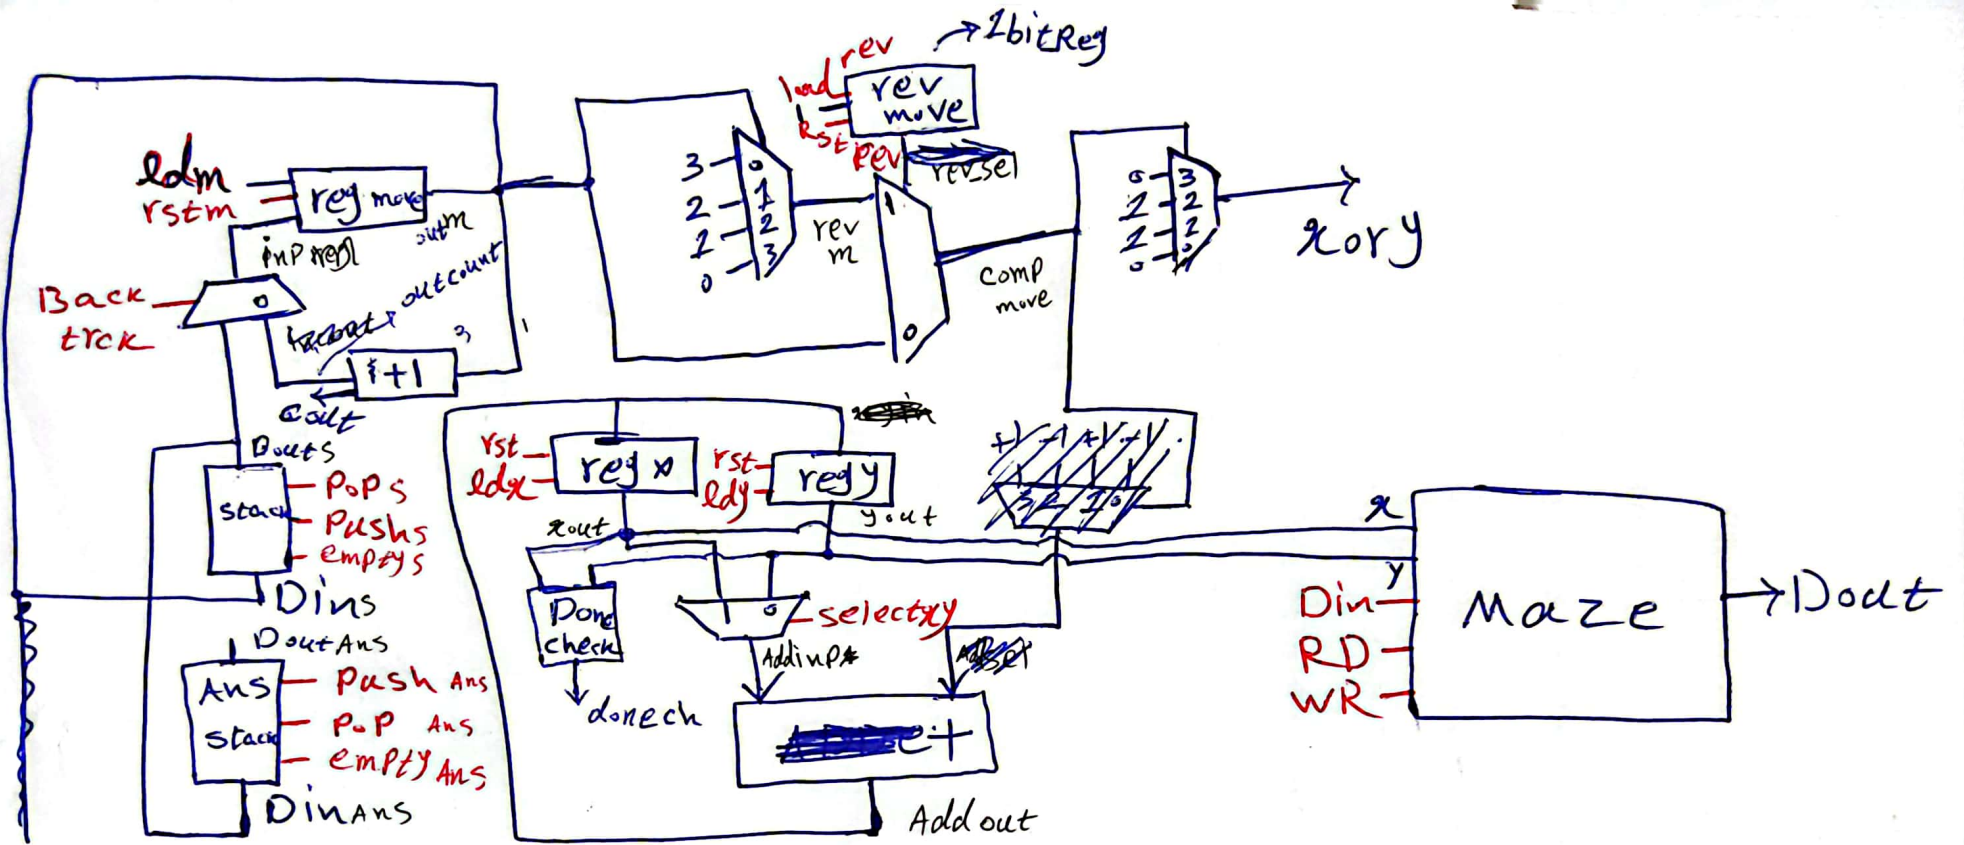 1bitReg
rev
load
rev
move
Rst
rev
rev_sel
ldm
rstm
reg move
outm
inp reg1
Back
trck
0
outcount
i+1
Cout
3
2
1
0
0
1
2
3
rev
m
1
0
comp
move
0
1
1
0
3
2
x or y
Douts
stack
Pops
Pushs
emptys
Dins
DoutAns
Ans
stack
Push Ans
Pop Ans
empty Ans
DinAns
rst
ldx
reg x
rst
ldy
reg y
xout
yout
Done
check
donech
0
selectxy
Addinp
+
Addout
x
y
Din
RD
WR
Maze
Dout